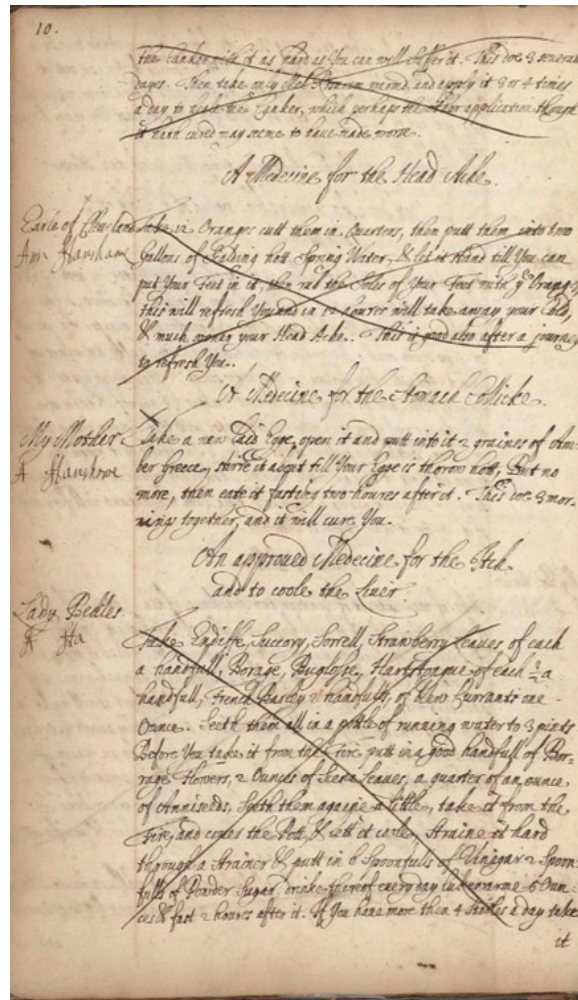 10.
the Canker with it as hard as You can well suffer it. This doe 3 severall
dayes. Then take only Mel Rosarum warmd, and apply it 3 or 4 times
a day to the Canker, which perhaps the other application though
it hath cured may seeme to have made worse.
A Medicine for the Head Ache.
Earle of
Take 12 Oranges cutt them in Quarters, then putt them into two
Ann Fanshawe
Gallons of Scalding hott Spring Water, & let it stand till You can
put Your Feet in it, then rub the Soles of Your Feet with ye Oranges,
this will refresh You and in 12 houres will take away your Cold,
& much your Head Ache. This is good also after a journey
to refresh You.
A Medicine for the Stomach Collicke.
My Mother
Take a new laid Egge, open it and putt into it 2 graines of Am-
A Fanshawe
ber Greece, stirre it about till Your Egge is thorow hott, but no
more, then eate it fasting two houres after it. This doe 3 mor-
nings together, and it will cure You.
An approved Medicine for the Itch
and to coole the Liver.
Lady Bedles.
A Fa
Take Endiffe, Succory, Sorrell, Strawberry leaves, of each
a handfull, Borage, Buglosse, Hartstongue of each ½ a
handfull, French Barley 2 handfulls, of blew Currants one
Ounce. Seeth them all in a pottle of running water to 3 pints.
Before You take it from the Fire putt in a good handfull of Bor-
rage Flowers, 2 Ounces of Seena leaves, a quarter of an ounce
of Anniseeds, Seeth them againe a little, take it from the
Fire, and cover the Pott, & lett it coole, Straine it hard
through a strainer & putt in 6 Spoonfulls of Vinigar 2 Spoon-
fulls of Powder Sugar, drinke thereof every day lukewarme 5 Oun-
ces & fast 2 houres after it. If You have more then 4 Stooles a day take
it